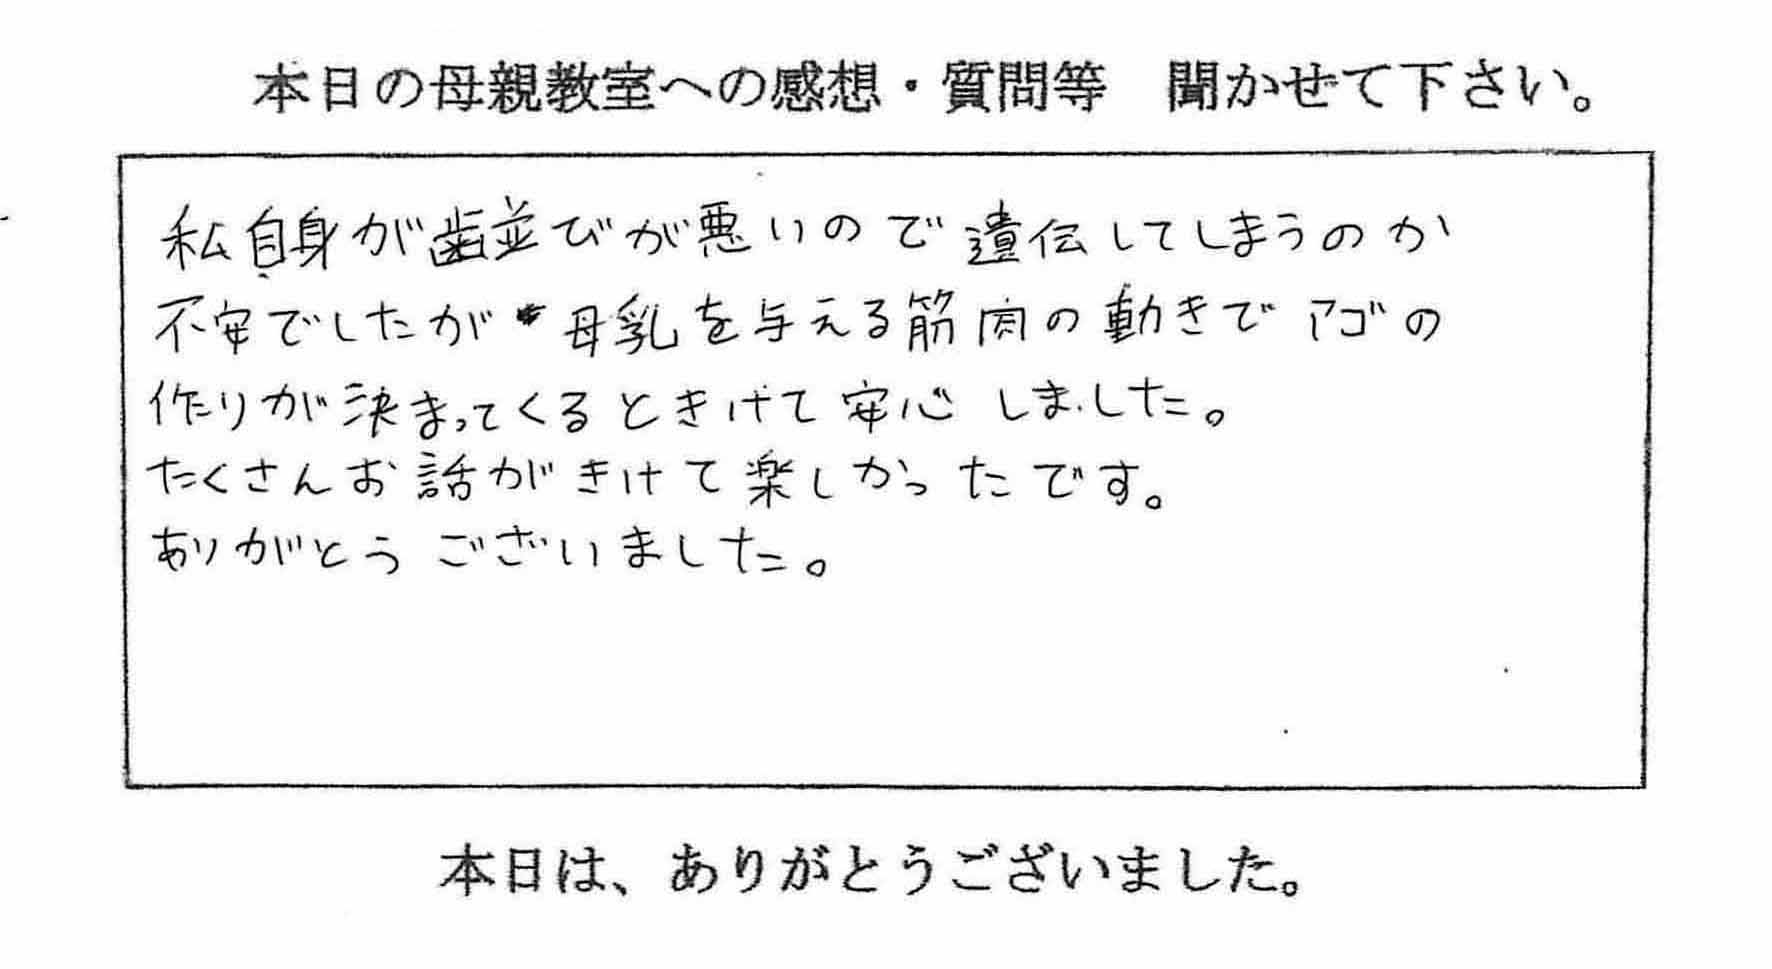 本日の母親教室への感想・質問等　聞かせて下さい。
私自身が歯並びが悪いので遺伝してしまうのか
不安でしたが母乳を与える筋肉の動きでアゴの
作りが決まってくるときけて安心しました。
たくさんお話がきけて楽しかったです。
ありがとうございました。
本日は、ありがとうございました。